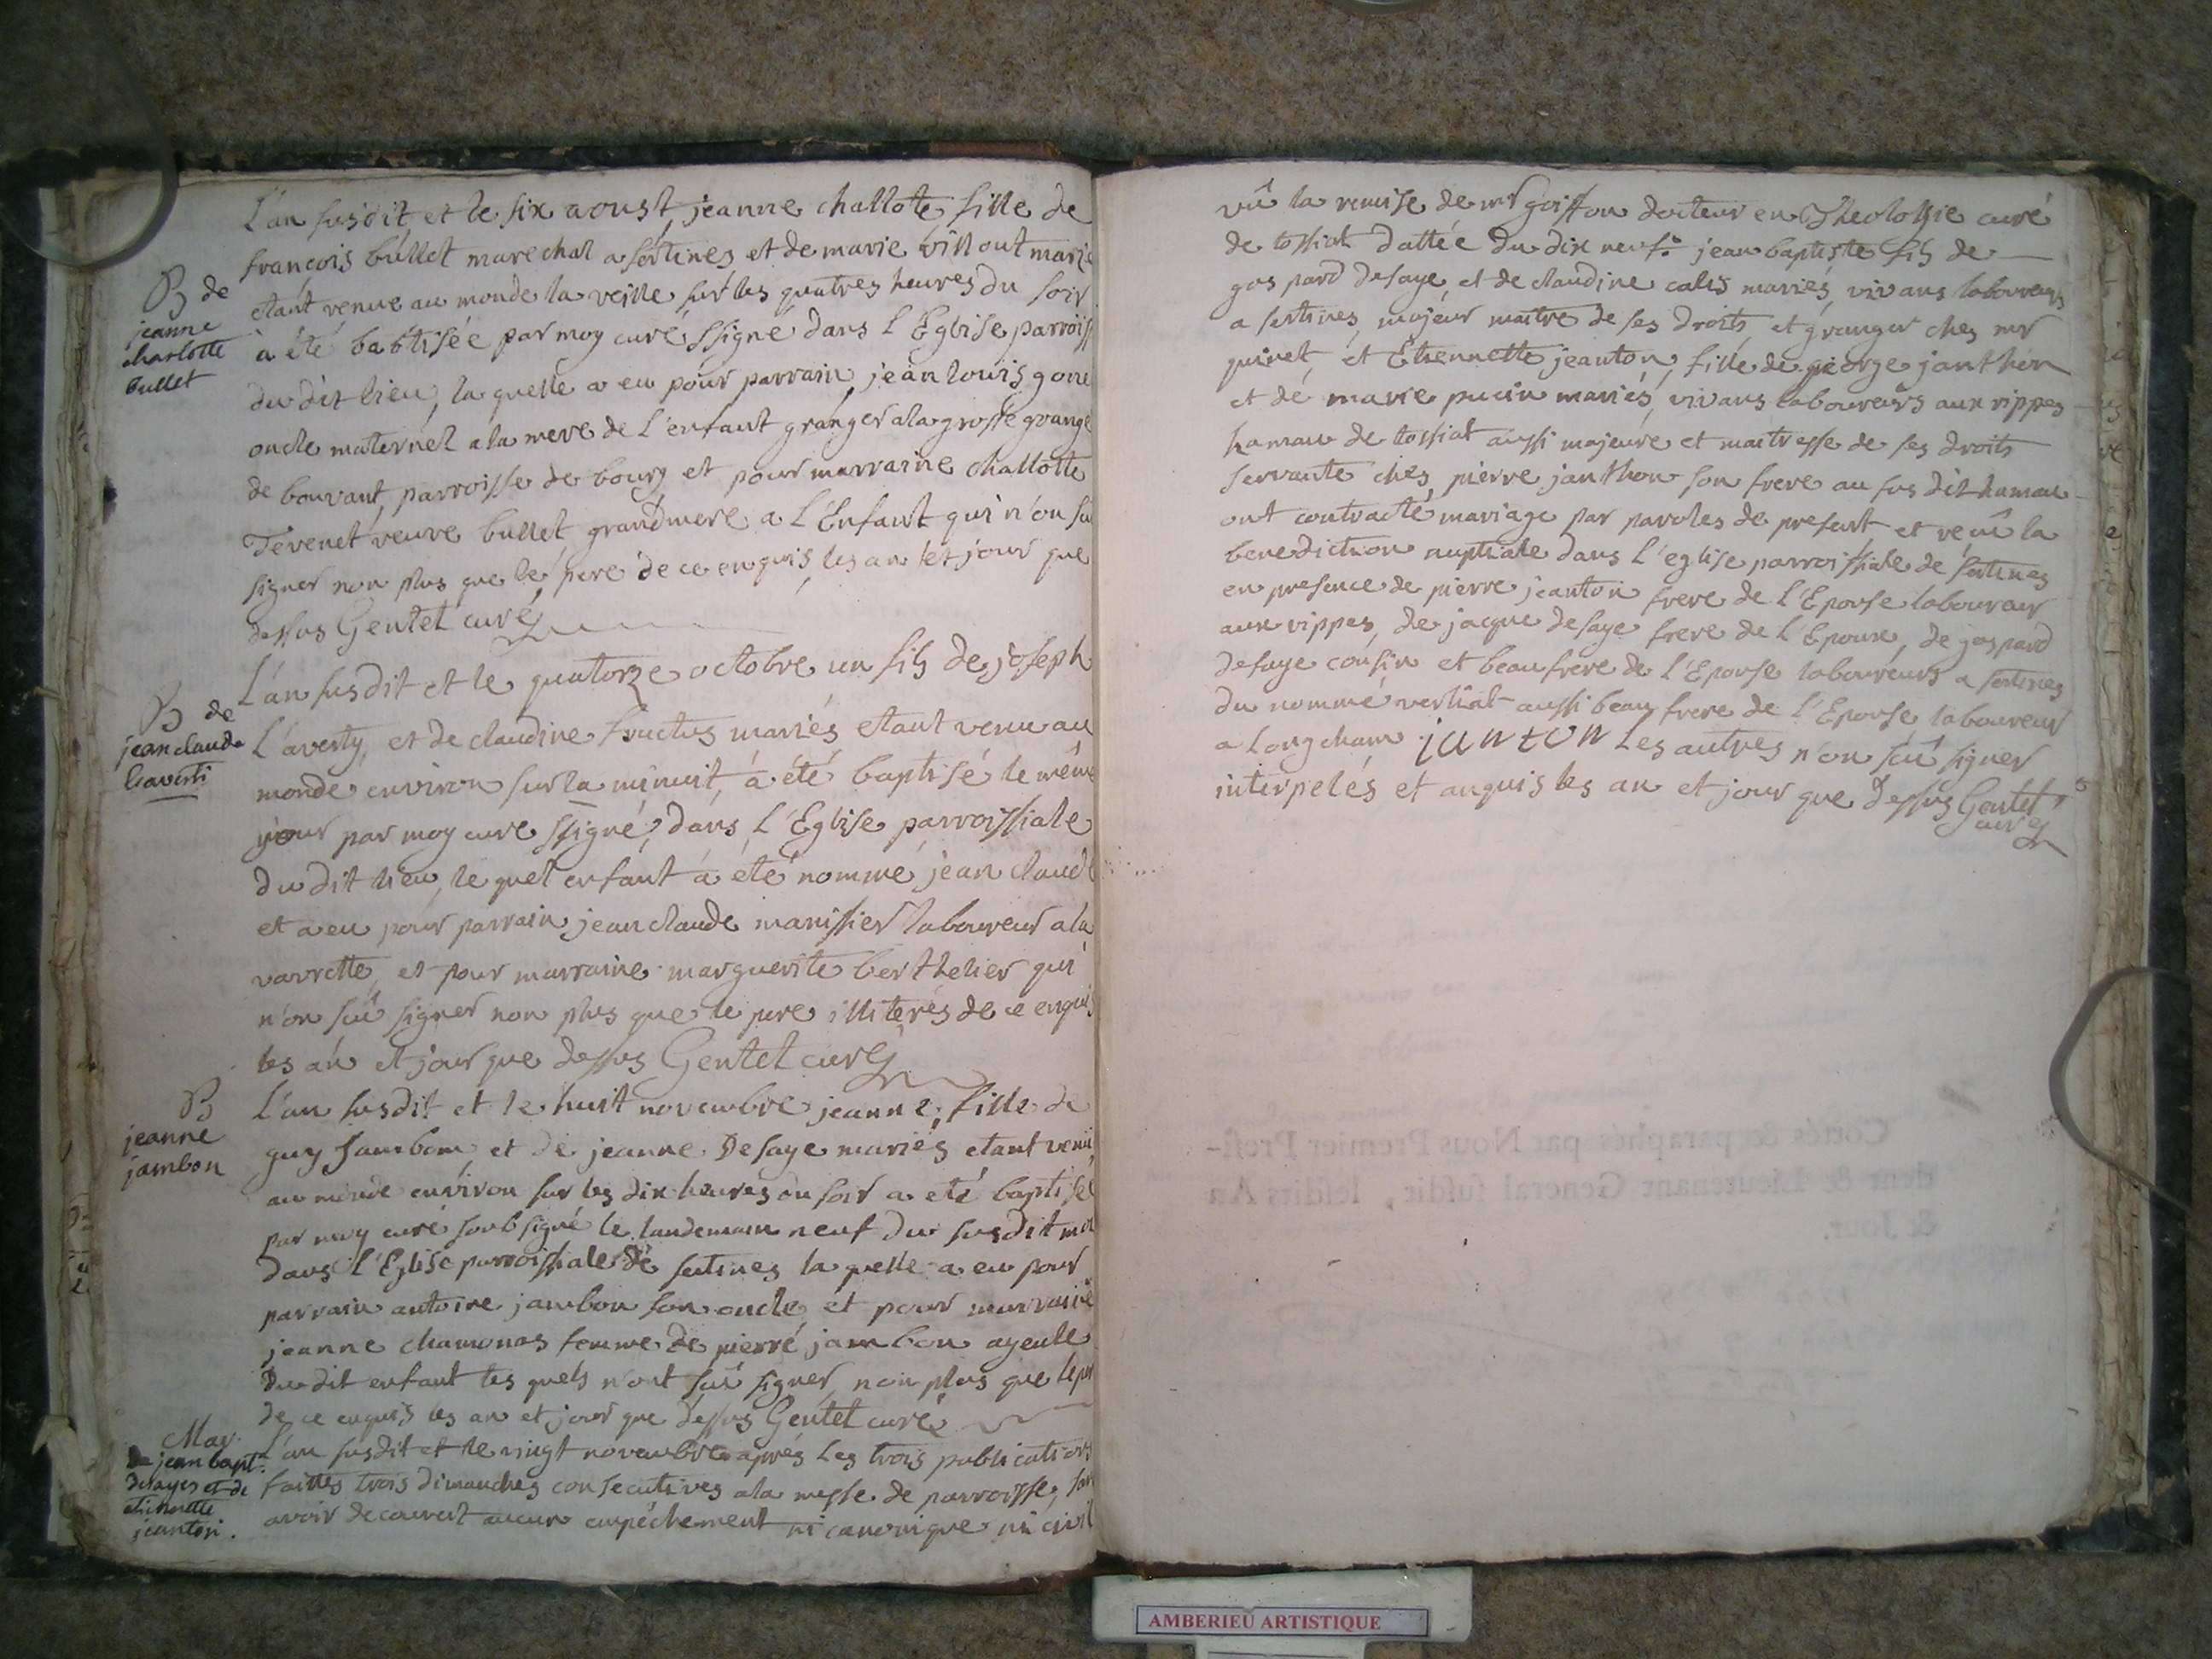 L'an susdit, et le six aoust, jeanne challote fille de
françois bullet marechal a sertines et de marie
B de
jeanne
charlotte
bullet
etant venue au monde la veille sur les quatres heures du soir
à été babtisée par moy curé ssigné dans L'Eglise parroiss
du dit lieu, la quelle a eu pour parrain jean louis
oncle maternel a la mere de L'enfant granger a la grosse grange
de bouvant, parroisse de bourg et pour marraine challotte
Tevenet veuve bullet grandmere a L'Enfant qui n'on su
signer non plus que le pere de ce enquis, les an et jour que
dessus Gentet curé
L'an susdit et le quatorze octobre un fils de joseph
B de
jean claude
L'averti
L'averty, et de claudine fructus mariés etant venu au
monde environ sur la minuit, à été baptisé le même
jour par moy curé ssigné, dans L'Eglise parroissiale
du dit lieu, le quel enfant a été nommé jean claude
et a eu pour parrain jean claude manissier laboureur a la
vavrette, et pour marraine marguerite berthelier qui
n'on sçû signer non plus que le pere illiterés de ce enquis
les an et jour que dessus Gentet curé
B
jeanne
jambon
L'an susdit et le huit novembre jeanne, fille de
guy Jambom et de jeanne Desaye mariés etant venü
au monde environ sur les dix heures du soir a eté baptisé
par moy curé soubsigné le landemain neuf du susdit moi
dans L'Eglise parroissiale de sertines la quelle a eu pour
parrain antoine jambon son oncle, et pour marraine
jeanne chamonas femme de pierré jambon ayeule
Du dit enfant les quels n'ont sçû signer, non plus que le per
de ce enquis les an et jour que dessus Gentet curé
Mar.
de jean bapt.
desayes et de
etiennette
jeanton.
L'an susdit et le vingt novembre après les trois publications
faittes trois dimanches consecutives a la messe de parroisse, san
avoir decouvert aucun empéchement ni canonique ni civil
vû la remise de mr goiffon docteur en Theologie curé
de tossiat dattée du dix neufe. jean baptiste fils de
gaspard desaye, et de claudine mariés, vivans laboureurs
a sertines, majeur maitre de ses droits, et granger ches mr
quinet, et Etiennette jeanton, fille de george janthon
et dé marie pucin mariés, vivans laboureurs aux rippes
hamau de tossiat aussi majeure et maitresse de ses droits
servante ches pierre janthon son frere au sus dit hamau
ont contracté mariage par paroles de presant et reçû la
benediction nuptiale dans L'eglise parroissiale de sertines
en presence de pierre jeanton frere de L'Epouse laboureur
aux rippes, de jacque desaye frere de L'Epoux, de gaspard
desaye cousin et beaufrere de L'Epouse laboureurs a sertines
du nommé verliat aussi beau frere de L'Epouse laboureur
a Longcham janton Les autres n'on sçû signer
interpelés et anquis les an et jour que dessus Gentet
curé
Cottés & paraphés par Nous Premier Presi-
dent & Lieutenant General susdit, lesdits An
& Jour.
AMBERIEU ARTISTIQUE